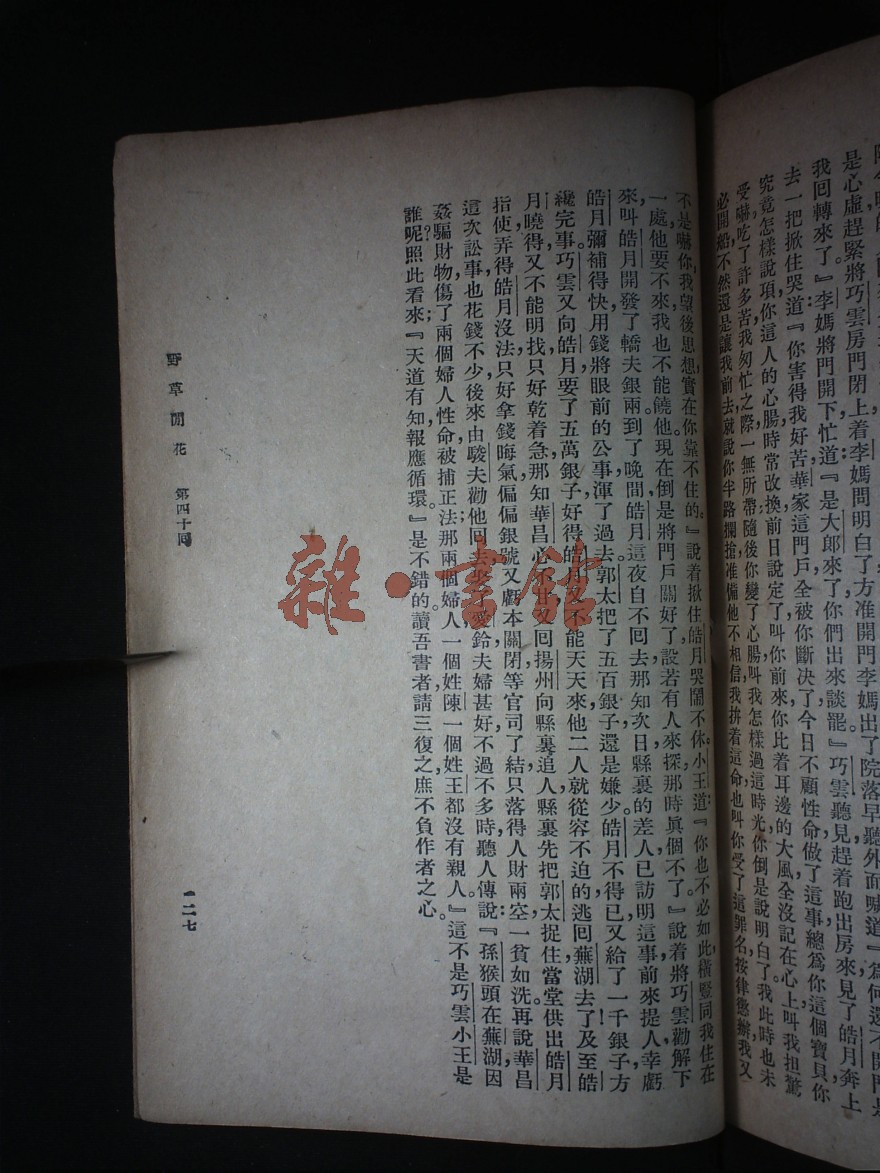 是心虛趕緊將巧雲房門閉上着李媽問明白了方准開門李媽出了院落早聽外面嘯道『爲何還不開門是
我回轉來了。』李媽將門開下忙道『是大郎來了你們出來談罷』巧雲聽見趕着跑出房來見了皓月奔上
去一把掀住哭道『你害得我好苦華家這門戶全被你斷決了今日不顧性命做了這事總爲你這個寶貝你
究竟怎樣說項你這人的心腸時常改換前日說定了叫你前來你比着耳邊的大風全沒記在心上叫我担驚
受嚇吃了許多苦我匆忙之際一無所帶隨後你變了心腸叫我怎樣過這時光你倒是說明白了我此時也未
必開船不然還是讓我前去就說你半路攔搶准備他不相信我拚着這命也叫你受了這罪名按律懲辦我又
不是嚇你我望後思想實在你靠不住的。』說着掀住皓月哭鬧不休小王道『你也不必如此橫豎同我住在
一處他要不來我也不能饒他現在倒是將門戶關好了設若有人來探那時眞個不了』說着將巧雲勸解下
來叫皓月開發了轎夫銀兩到了晚間皓月這夜自不回去那知次日縣裏的差人已訪明這事前來提人幸虧
皓月彌補得快用錢將眼前的公事渾了過去郭太把了五百銀子還是嫌少皓月不得已又給了一千銀子方
纔完事巧雲又向皓月要了五萬銀子好得皓月又不能天天來他二人就從容不迫的逃回蕪湖去了及至皓
月曉得又不能明找只好乾着急那知華昌必又回揚州向縣裏追人縣裏先把郭太捉住當堂供出皓月
指使弄得皓月沒法只好拿錢晦氣偏偏銀號又虧本關閉等官司了結只落得人財兩空一貧如洗再說華昌
這次訟事也花錢不少後來由駿夫勸他回去娶了愛鈴夫婦甚好不過不多時聽人傳說:『孫猴頭在蕪湖因
姦騙財物傷了兩個婦人性命被捕正法那兩個婦人一個姓陳一個姓王都沒有親人。』這不是巧雲小王是
誰呢?照此看來;『天道有知報應循環。』是不錯的讀吾書者請三復之庶不負作者之心。
野草閒花 第四十回
一二七
雜·書館